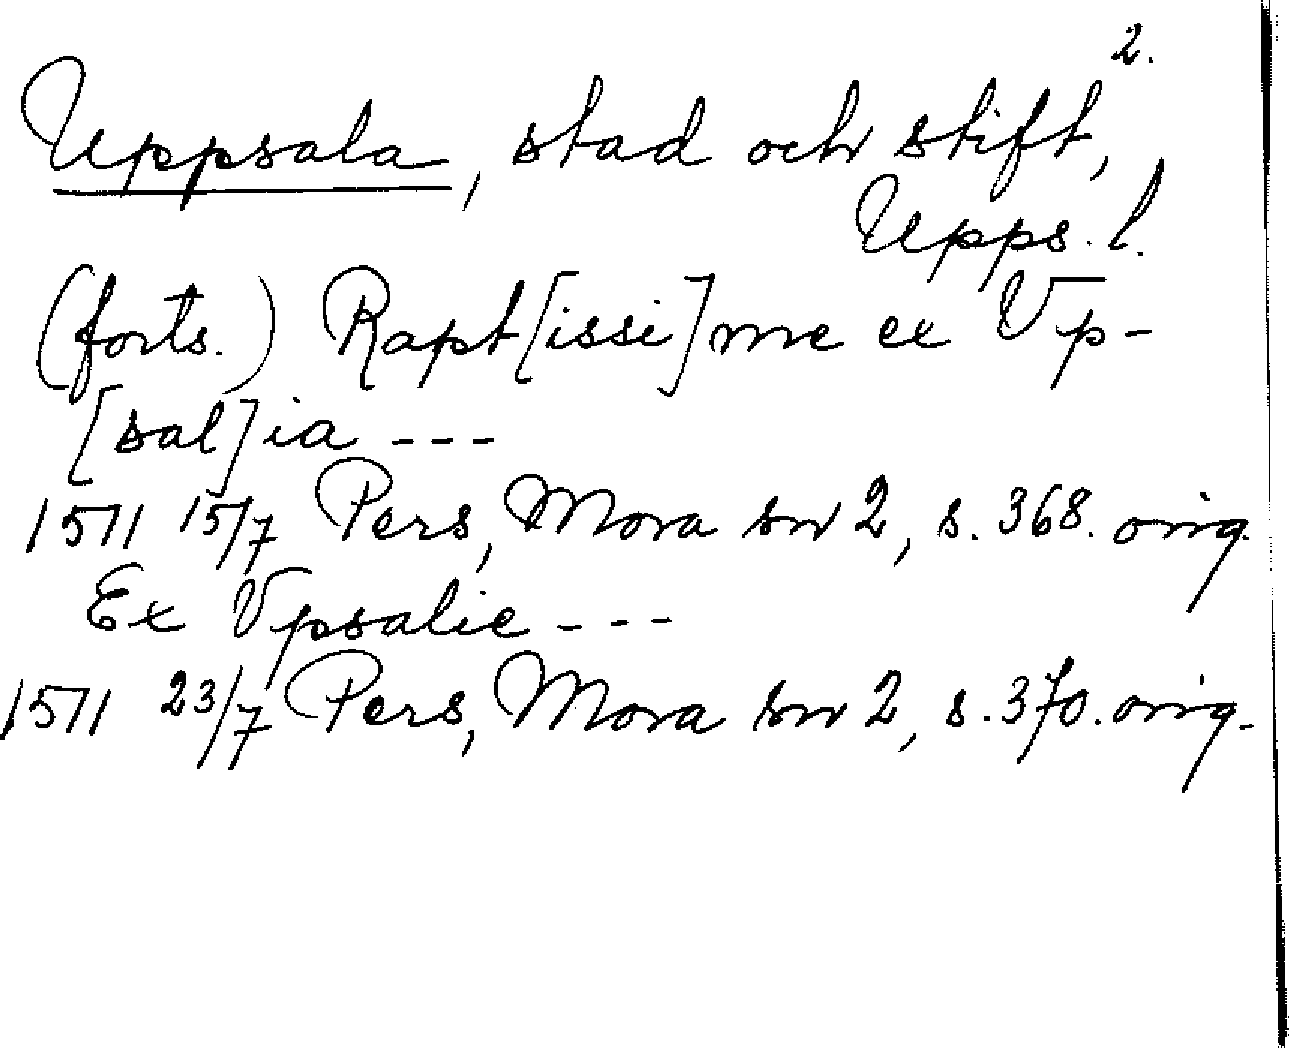 2.
Uppsala, stad och stift,
Upps. l.
(forts.) Rapt[issi]me ex Vp-
[sal]ia ---
1571 15/7 Pers, Mora sn 2, s. 368. orig.
Ex Vpsalie ---
1571 23/7 Pers, Mora sn 2, s. 370. orig.